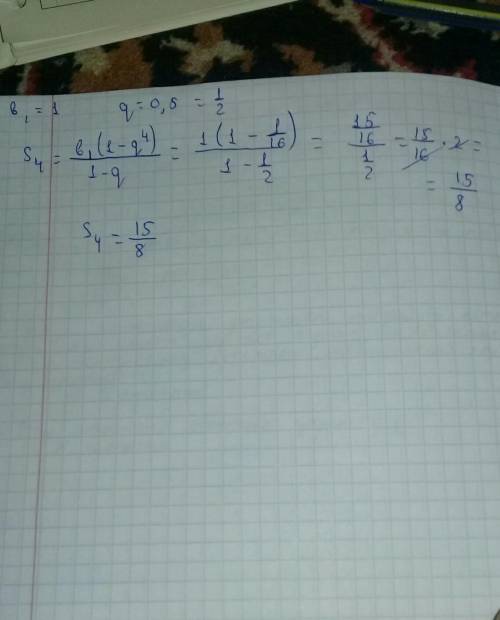 в₁ = 1 q = 0,5 = 1/2
S₄ = в₁(1-q⁴)/(1-q) = 1(1 - 1/16)/(1 - 1/2) = (15/16)/(1/2) = 15/16 · 2 =
= 15/8
S₄ = 15/8